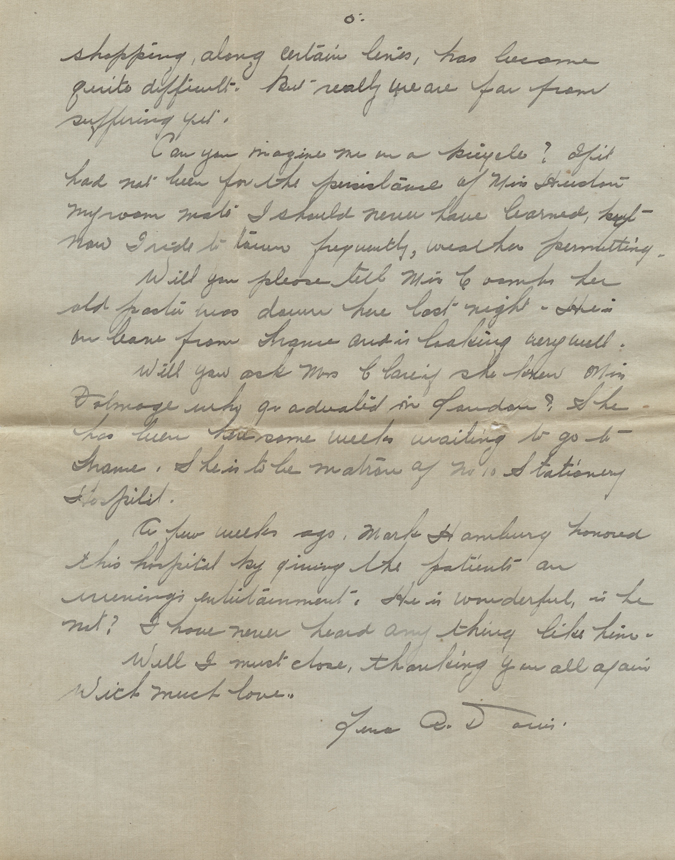 5.
shopping, along certain lines, has become
quite difficult. But really we are far from
suffering yet.
Can you imagine me on a bicycle? If it
had not been for the persistance of Miss
my room mate I should never have learned, but
now I ride to town frequently, weather permitting.
Will you please tell Miss Coombs her
old pastor was down here last night - He is
on leave from France and is looking very well.
Will you ask Mrs if she knew Miss
Talmage who graduated in London? She
has been here some weeks waiting to go to
France. She is to be matron of No 10 Stationery
Hospital.
A few weeks ago, Mark Hamburg honored
this hospital by giving the patients an
evenings entertainment. He is wonderful, is he
not? I have never heard any thing like him.
Well I must close, thanking you all again
With much love.
Lena A. Davis.